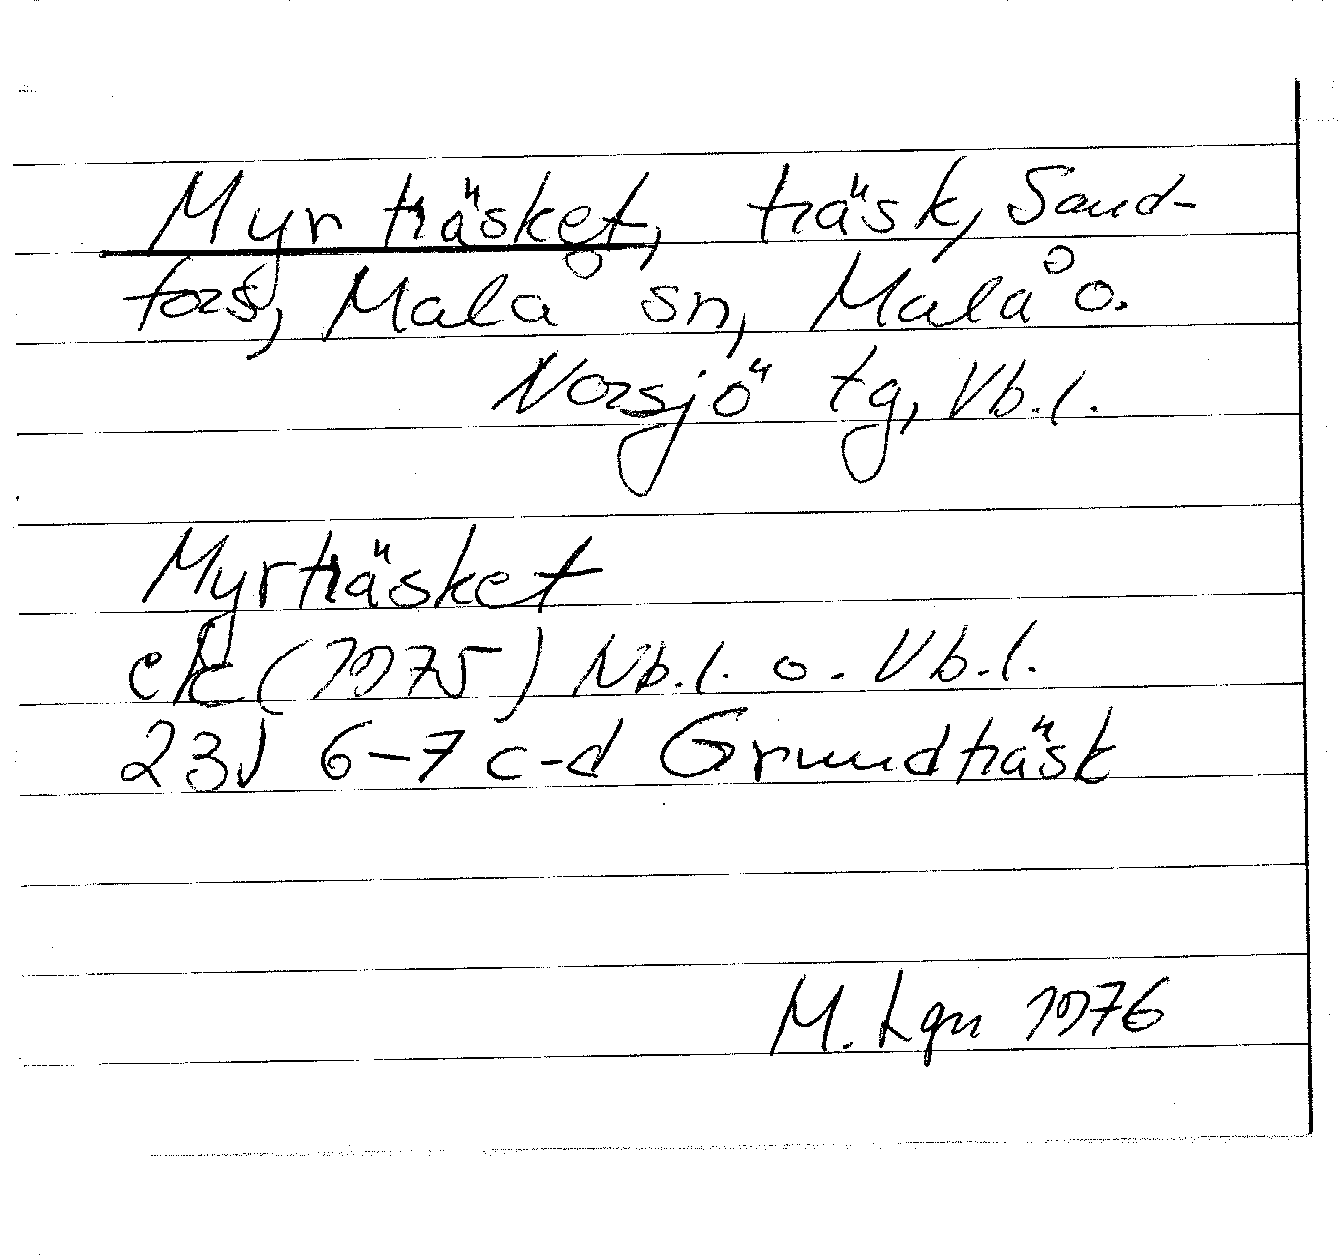 Myrträsket, träsk, Sand-
fors, Malå sn, Malå o.
Norsjö tg, Vb.l.
Myrträsket
ek (1975) Nb.l. o. Vb.l.
23J 6-7 c-d Grundträsk
M. Lgn 1976